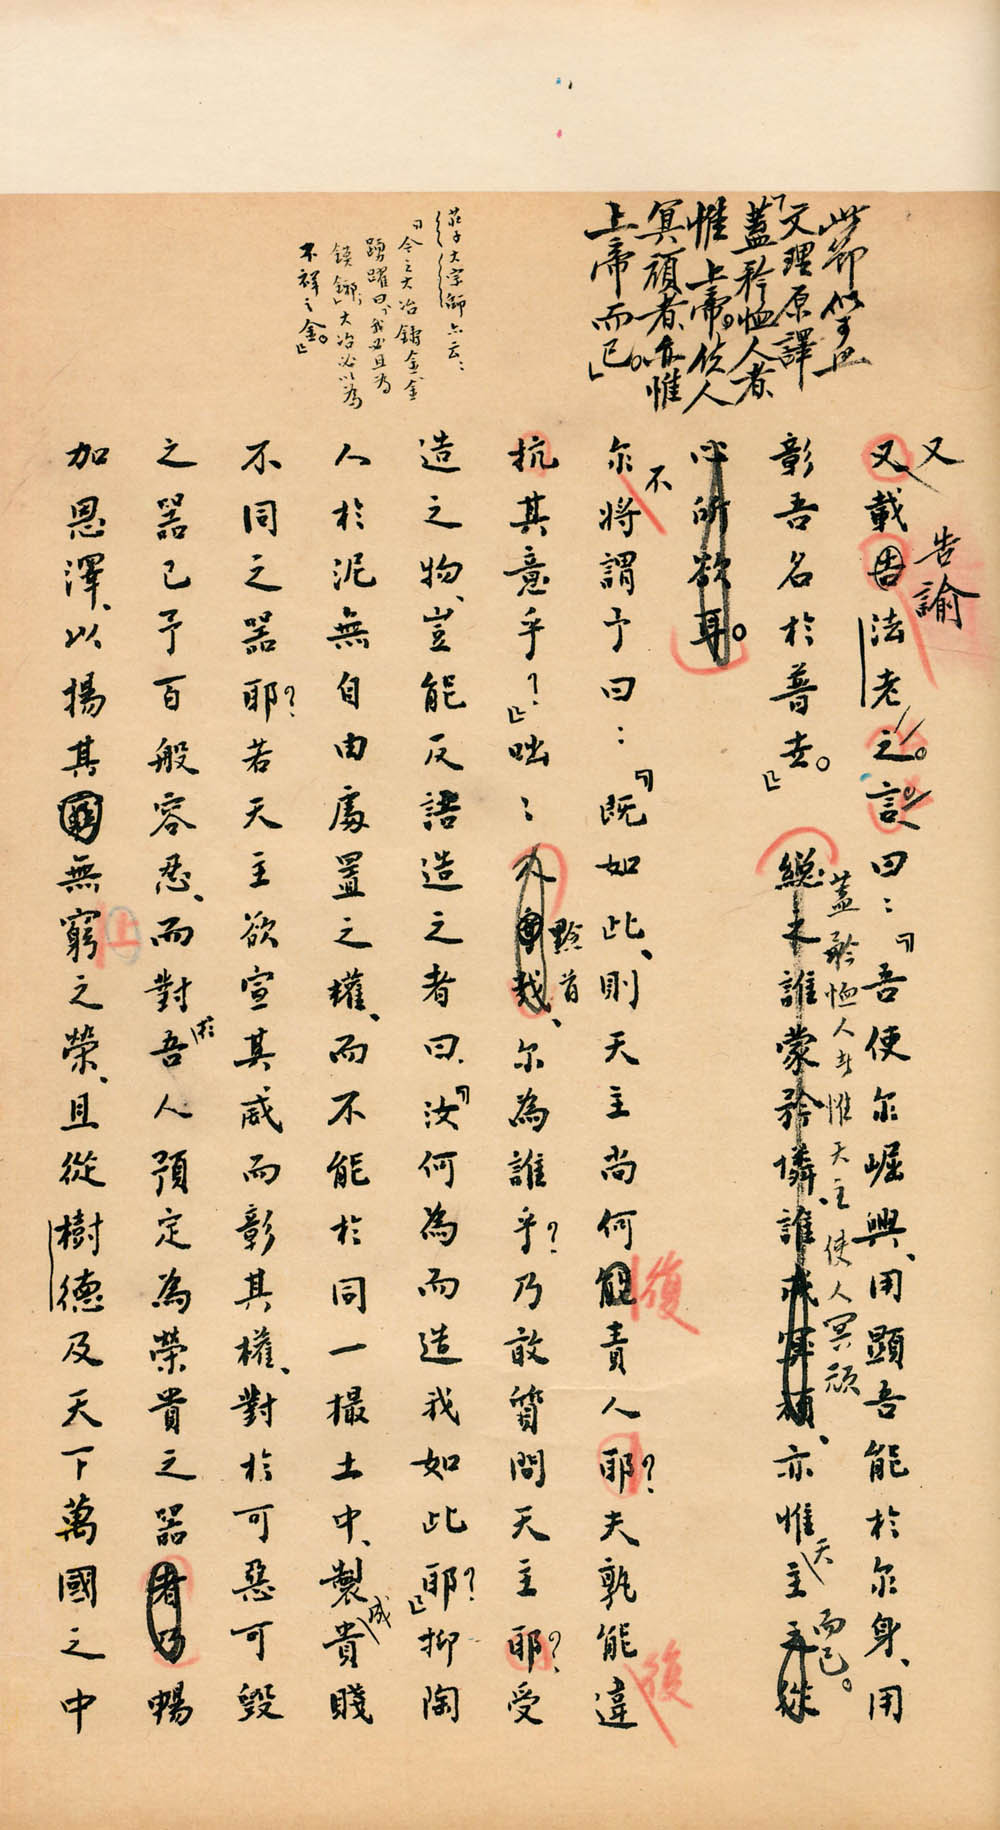 此節似可照
「文理原譯
蓋矜恤人者
惟上帝。使人
冥頑者亦惟
上帝而已。」
莊子大宗師亦云:
「今之大冶鑄金金
踴躍曰、「我必且為
鏌鋣」大冶必以為
不祥之金。」
又
告諭
又載告法老之言。曰:「吾使尔崛興、用顯吾能於尔身、用
彰吾名於普世。」
總之誰蒙矜憐、誰成冥頑、亦惟主
蓋矜恤人者惟天主使人冥頑
天
而已。
心所欲耳。
尔將謂予曰:「既如此、則天主尚何能責人耶?夫孰能違
不
復
後
抗其意乎?」咄:人
哉、尔為誰乎?乃敢質問天主耶?受
黔首
造之物、豈能反語造之者曰、「汝何為而造我如此耶?」抑陶
人於泥無自由處置之權、而不能於同一撮土中、製貴賤
成
不同之器耶?若天主欲宣其威而彰其權、對於可惡可毀
之器已予百般容忍、而對吾人預定為榮貴之器者乃暢
於
上
加恩澤、以揚其
無窮之榮、且從樹德及天下萬國之中